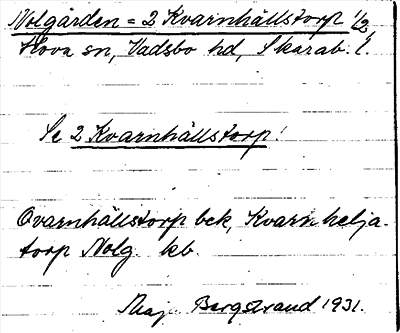 Nolgården = 2 Kvarnhällstorp 1/2,
Hova sn, Vadsbo hd, Skarab. l.
Se 2 Kvarnhällstorp!
Qvarnhällstorp bek, Kvarnhelja-
torp Nolg. kb.
Maj Bergstrand 1931.